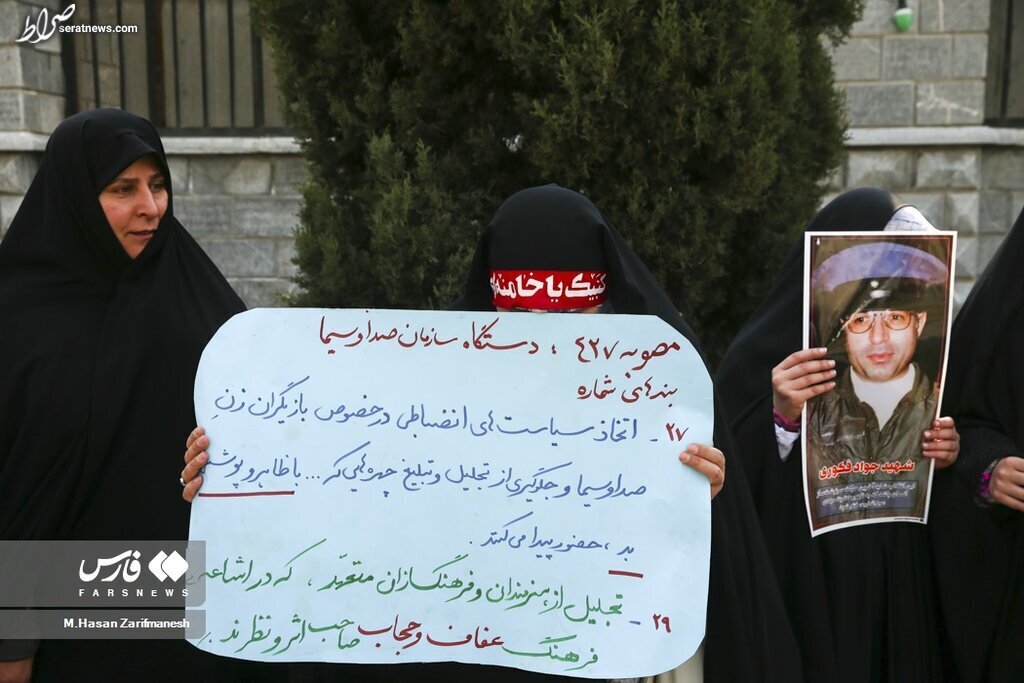 صراط
seratnews.com
لبیک یا خامنه‌ای
مصوبه ۴۲۷ : دستگاه سازمان صدا و سیما
بندهای شماره
۲۷ - اتخاذ سیاست‌های انضباطی در خصوص بازیگران زنِ
صدا و سیما و جلوگیری از تجلیل و تبلیغ چهره‌هایی که ... با ظاهر و پوشش
بد ، حضور پیدا می‌کنند .
۲۹ - تجلیل از هنرمندان و فرهنگسازان متعهد ، که در اشاعه
فرهنگ عفاف و حجاب صاحب اثر و نظرند .
شهید جواد فکوری
فارس
FARSNEWS
M.Hasan Zarifmanesh